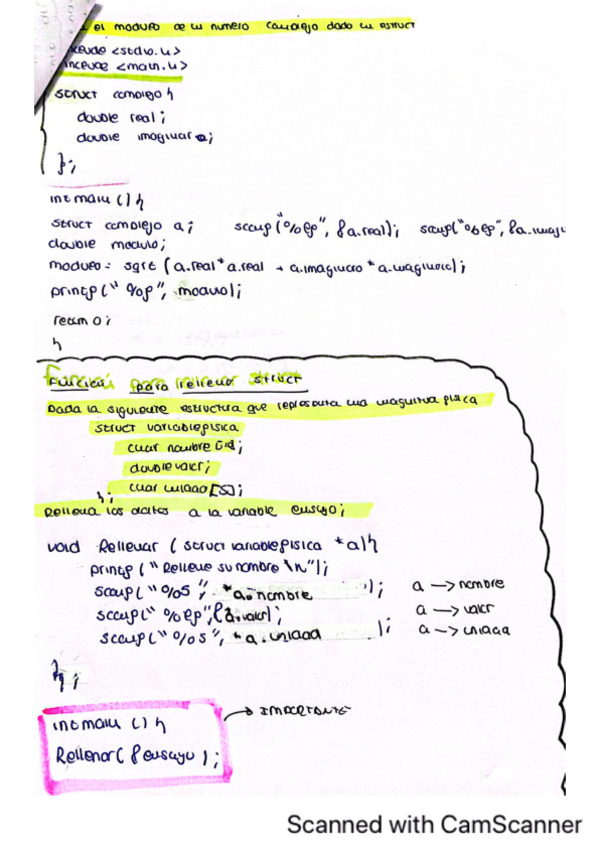 el modulo de un numero complejo dado en struct
<stdio.h>
<math.h>
struct complejo {
double real;
double imaginario;
};
int main () {
struct complejo a; scanf("%lf", &a.real); scanf("%lf", &a.imag
double modulo;
modulo = sqrt (a.real*a.real + a.imaginario * a.imaginario);
printf (" %f", modulo);
return 0;
}
Función para rellenar struct
Dada la siguiente estructura que representa una magnitud fisica
struct variablefisica
char nombre
double valor;
char unidad [5];
};
Rellena los datos a la variable ensayo;
void Rellenar ( struct variablefisica *a) {
printf (" Rellene su nombre \n");
scanf (" %s ", *a.nombre ); a -> nombre
scanf (" %lf", &a.valor); a -> valor
scanf (" %s", *a.unidad ); a -> unidad
};
int main () { → IMPORTANTE
Rellenar( & ensayo );
Scanned with CamScanner